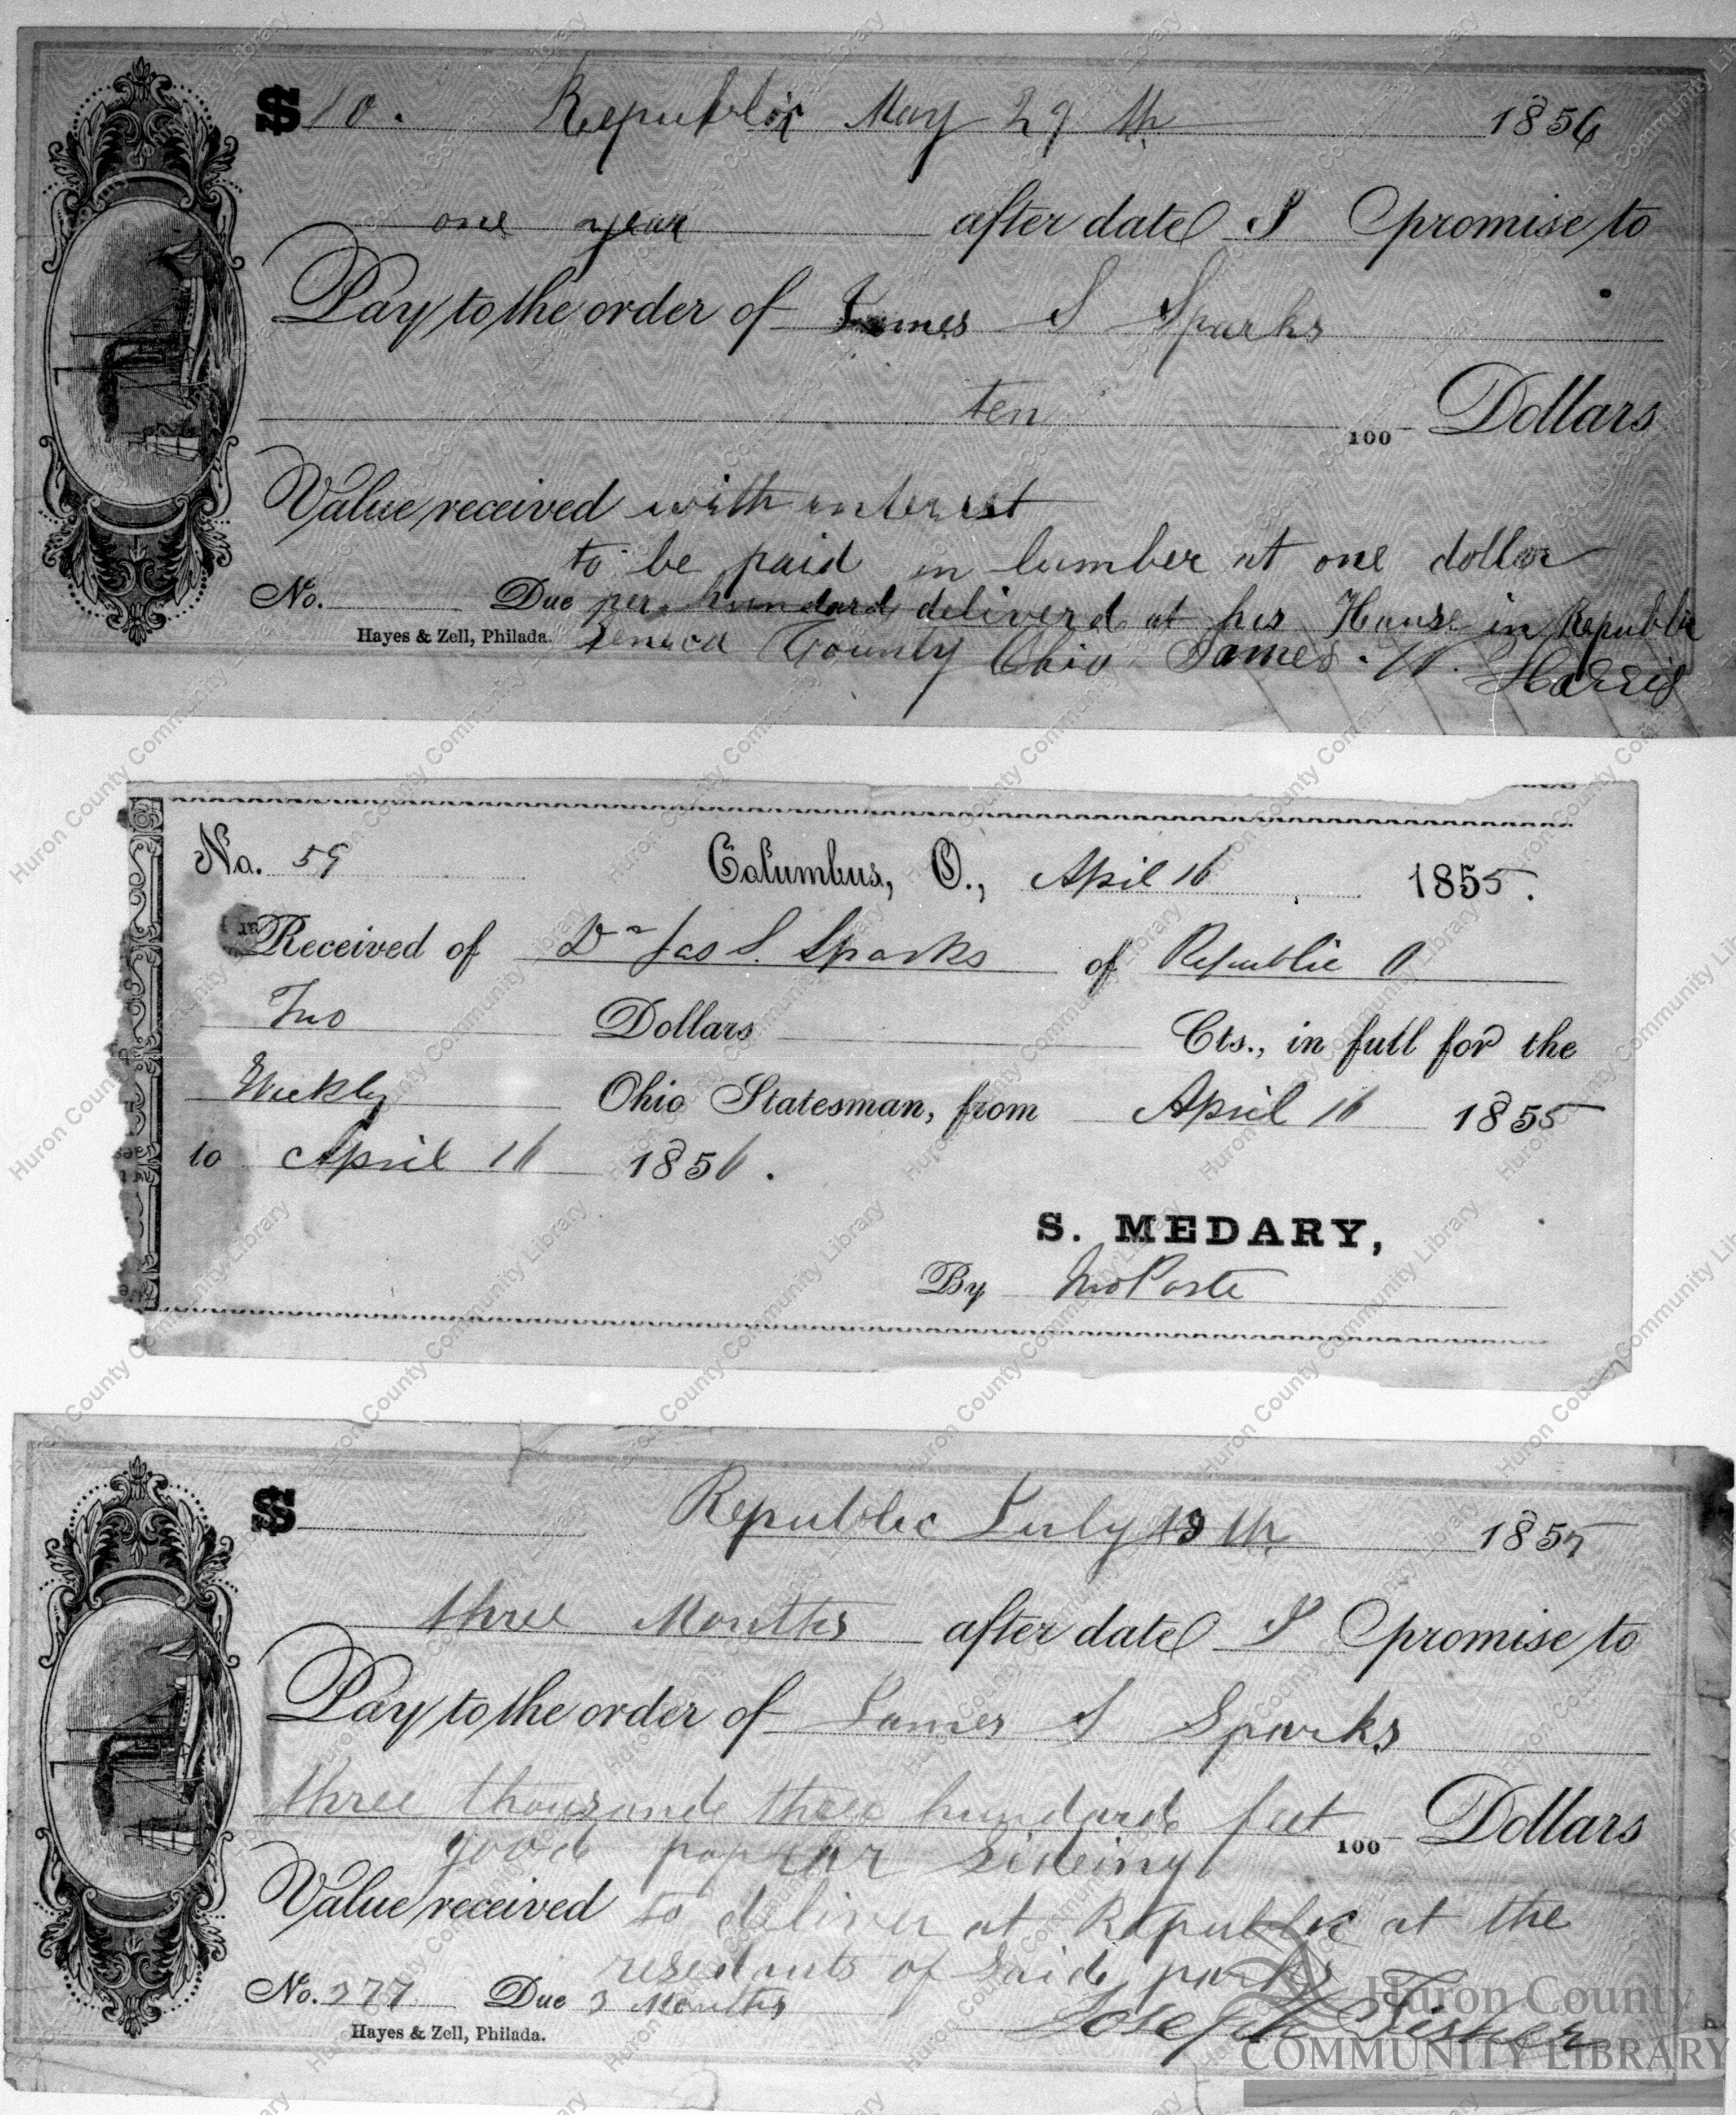 $ 10. Republic May 29 th 1856
one year after date I promise to
Pay to the order of James S Sparks
ten 100 Dollars
Value received with interest
to be paid in lumber at one dollar
No. Due per hundard deliverd at his House in Republic
Hayes & Zell, Philada. Seneca County Ohio James. W. Harris
No. 59 Columbus, O., April 16 1855.
Received of Dr Jas S. Sparks of Republic O
Two Dollars Cts., in full for the
Weekly Ohio Statesman, from April 16 1855
to April 16 1856.
S. MEDARY,
By
$ Republic July 13 th. 1857
three Months after date I promise to
Pay to the order of James S Sparks
three thousande three hundarde feet 100 Dollars
good poplar Sideing
Value received to deliver at Republic at the
resedents of Saide parks
No. 277 Due 3 Months
Hayes & Zell, Philada. Joseph Fisher
Huron County
COMMUNITY LIBRARY